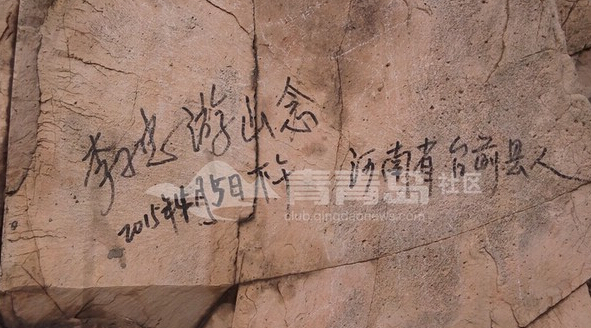 李忠游山念
河南省台前县人
2015年4月5日
青青岛社区
club.qingdaonews.com